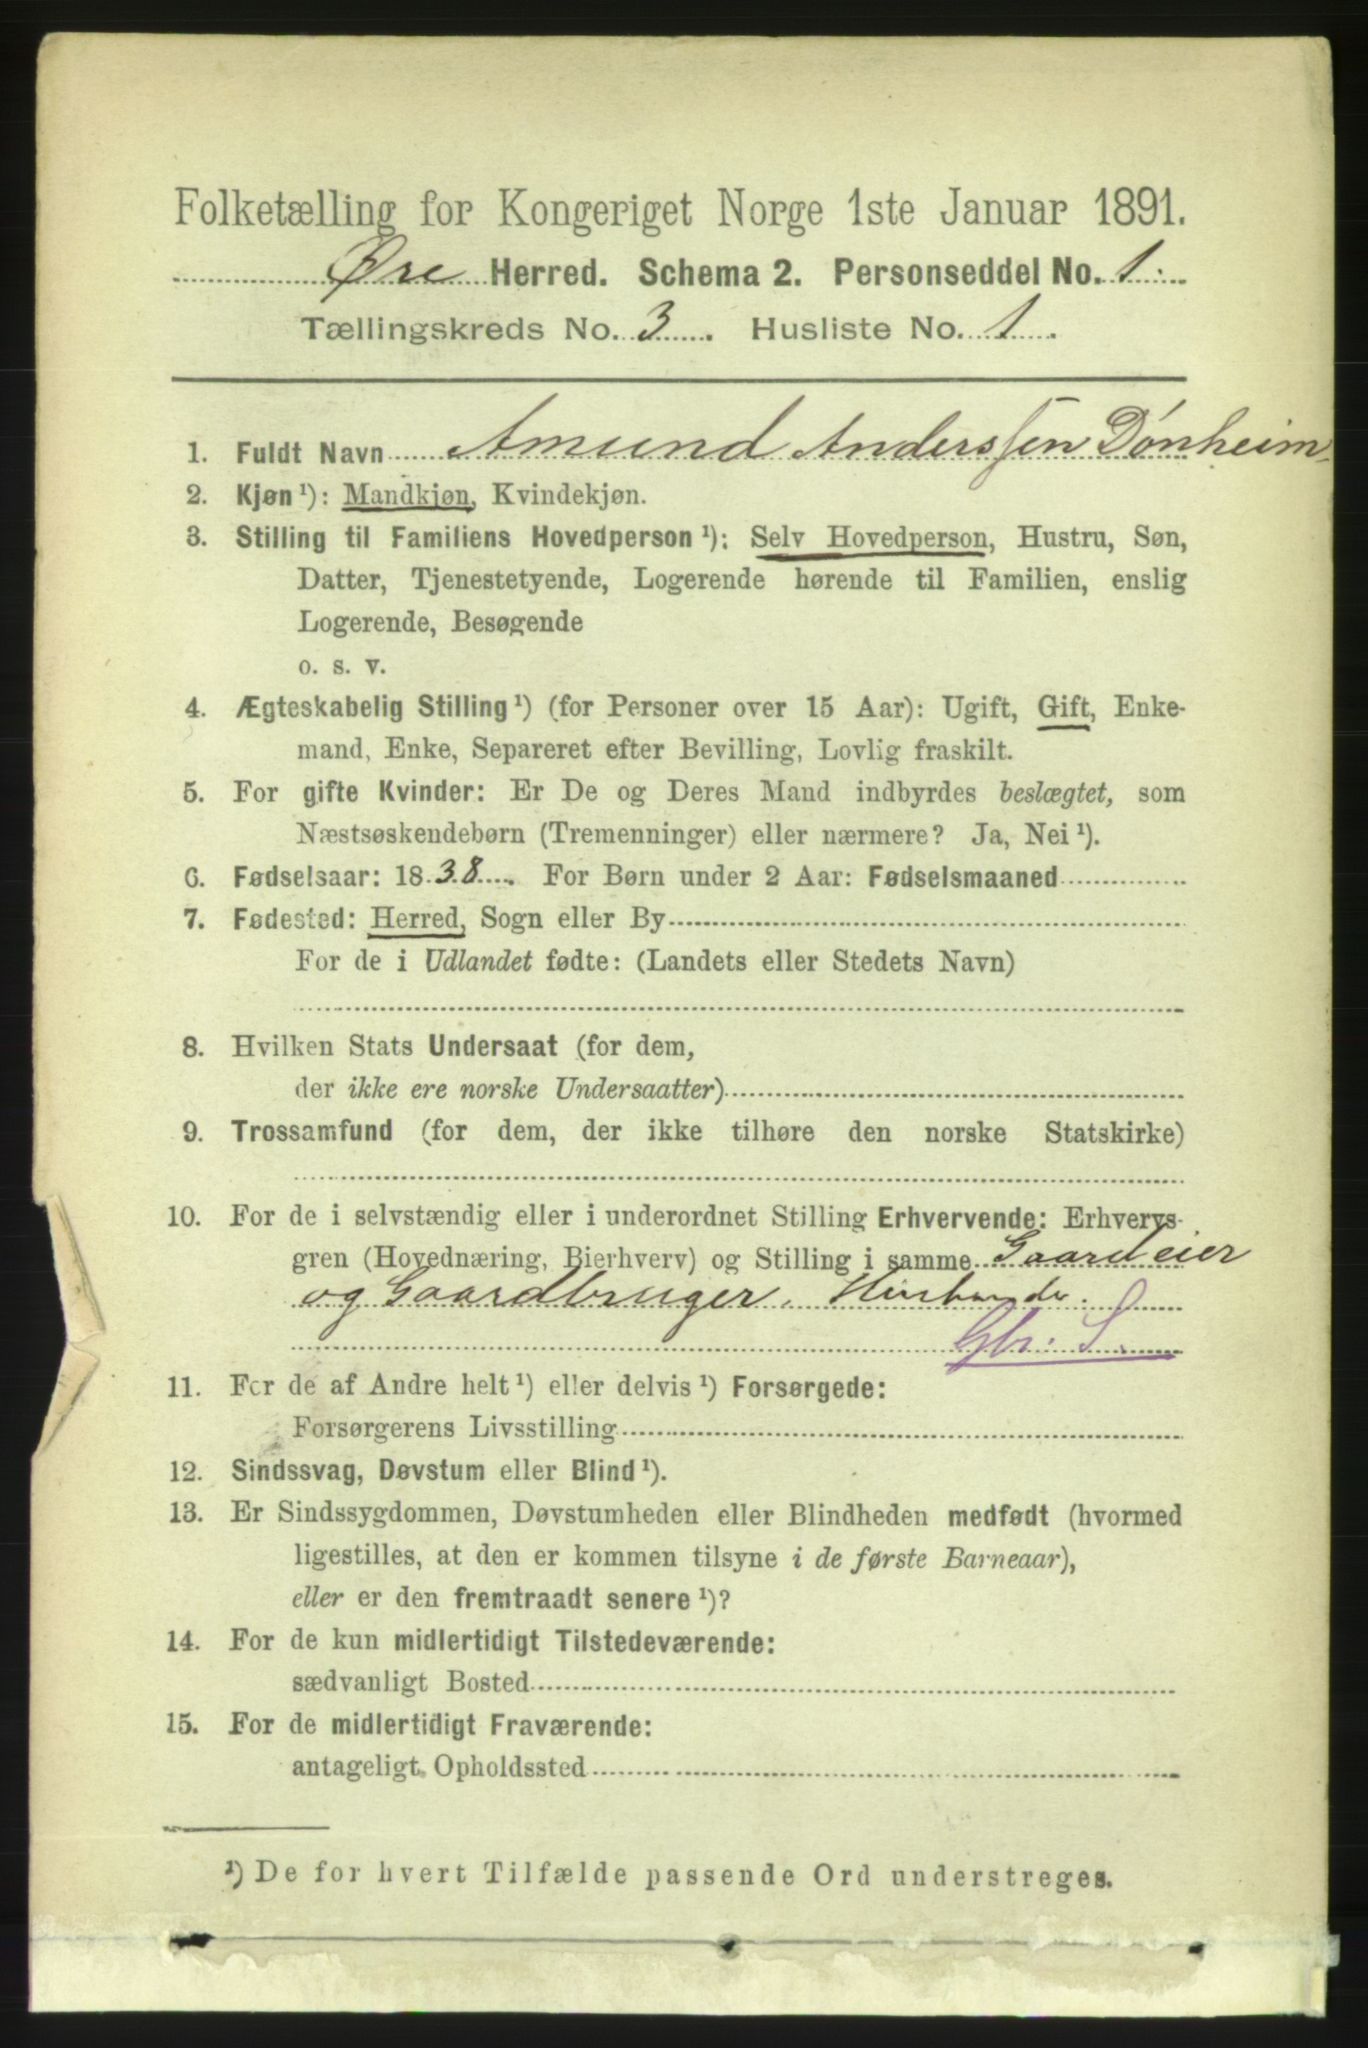 Folketælling for Kongeriget Norge 1ste Januar 1891.
Øre Herred. Schema 2. Personseddel No. 1.
Tællingskreds No. 3. Husliste No. 1.
1. Fuldt Navn Amund Anderssen Dønheim
2. Kjøn ¹): Mandkjøn, Kvindekjøn.
3. Stilling til Familiens Hovedperson ¹): Selv Hovedperson, Hustru, Søn,
Datter, Tjenestetyende, Logerende hørende til Familien, enslig
Logerende, Besøgende
o. s. v.
4. Ægteskabelig Stilling ¹) (for Personer over 15 Aar): Ugift, Gift, Enke-
mand, Enke, Separeret efter Bevilling, Lovlig fraskilt.
5. For gifte Kvinder: Er De og Deres Mand indbyrdes beslægtet, som
Næstsøskendebørn (Tremenninger) eller nærmere? Ja, Nei ¹).
6. Fødselsaar: 1838. For Børn under 2 Aar: Fødselsmaaned
7. Fødested: Herred, Sogn eller By
For de i Udlandet fødte: (Landets eller Stedets Navn)
8. Hvilken Stats Undersaat (for dem,
der ikke ere norske Undersaatter)
9. Trossamfund (for dem, der ikke tilhøre den norske Statskirke)
10. For de i selvstændig eller i underordnet Stilling Erhvervende: Erhvervs-
gren (Hovednæring, Bierhverv) og Stilling i samme Gaardeier
og Gaardbruger.
Gbr. S.
11. For de af Andre helt ¹) eller delvis ¹) Forsørgede:
Forsørgerens Livsstilling
12. Sindssvag, Døvstum eller Blind ¹).
13. Er Sindssygdommen, Døvstumheden eller Blindheden medfødt (hvormed
ligestilles, at den er kommen tilsyne i de første Barneaar),
eller er den fremtraadt senere ¹)?
14. For de kun midlertidigt Tilstedeværende:
sædvanligt Bosted
15. For de midlertidigt Fraværende:
antageligt Opholdssted
¹) De for hvert Tilfælde passende Ord understreges.